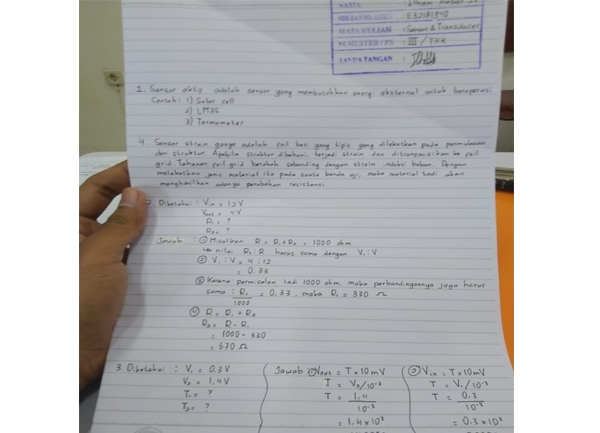 NAMA : Ilham
NIM/
MATA KULIAH : Sensor & Transducer
SEMESTER/PS : III / TKR
TANDA TANGAN :
1. Sensor aktif adalah sensor yang membutuhkan energi eksternal untuk beroperasi
Contoh : 1) Solar cell
2) LM35
3) Termometer
4. Sensor strain gauge adalah foil besi yang tipis yang dilekatkan pada permukaan
dari struktur. Apabila struktur dibebani, terjadi strain dan ditransmisikan ke foil
grid. Tahanan foil grid berubah sebanding dengan strain induksi beban. Dengan
melekatkan jenis material itu pada suatu benda uji, maka material tadi akan
menghasilkan adanya perubahan resistansi.
2. Diketahui : Vin = 12 V
Vout = 4V
R₁ = ?
R₂ = ?
Jawab : ① Misalkan R = R₁+R₂ = 1000 ohm
nilai R₁ : R harus sama dengan V₁ : V
② V₁ : V = 4 : 12
= 0.33
③ Karena permisalan tadi 1000 ohm, maka perbandingannya juga harus
sama : R₁/1000 = 0.33, maka R₁ = 330 Ω
④ R = R₁ + R₂
R₂ = R - R₁
= 1000 - 330
= 670 Ω
3. Diketahui : V₁ = 0,3 V
V₂ = 1,4 V
T₁ = ?
T₂ = ?
Jawab ① Vout = T × 10 mV
T = V₂/10⁻²
T = 1,4/10⁻²
= 1,4 x 10²
② Vin = T × 10 mV
T = V₁/10⁻²
T = 0.3/10⁻²
= 0.3 x 10²